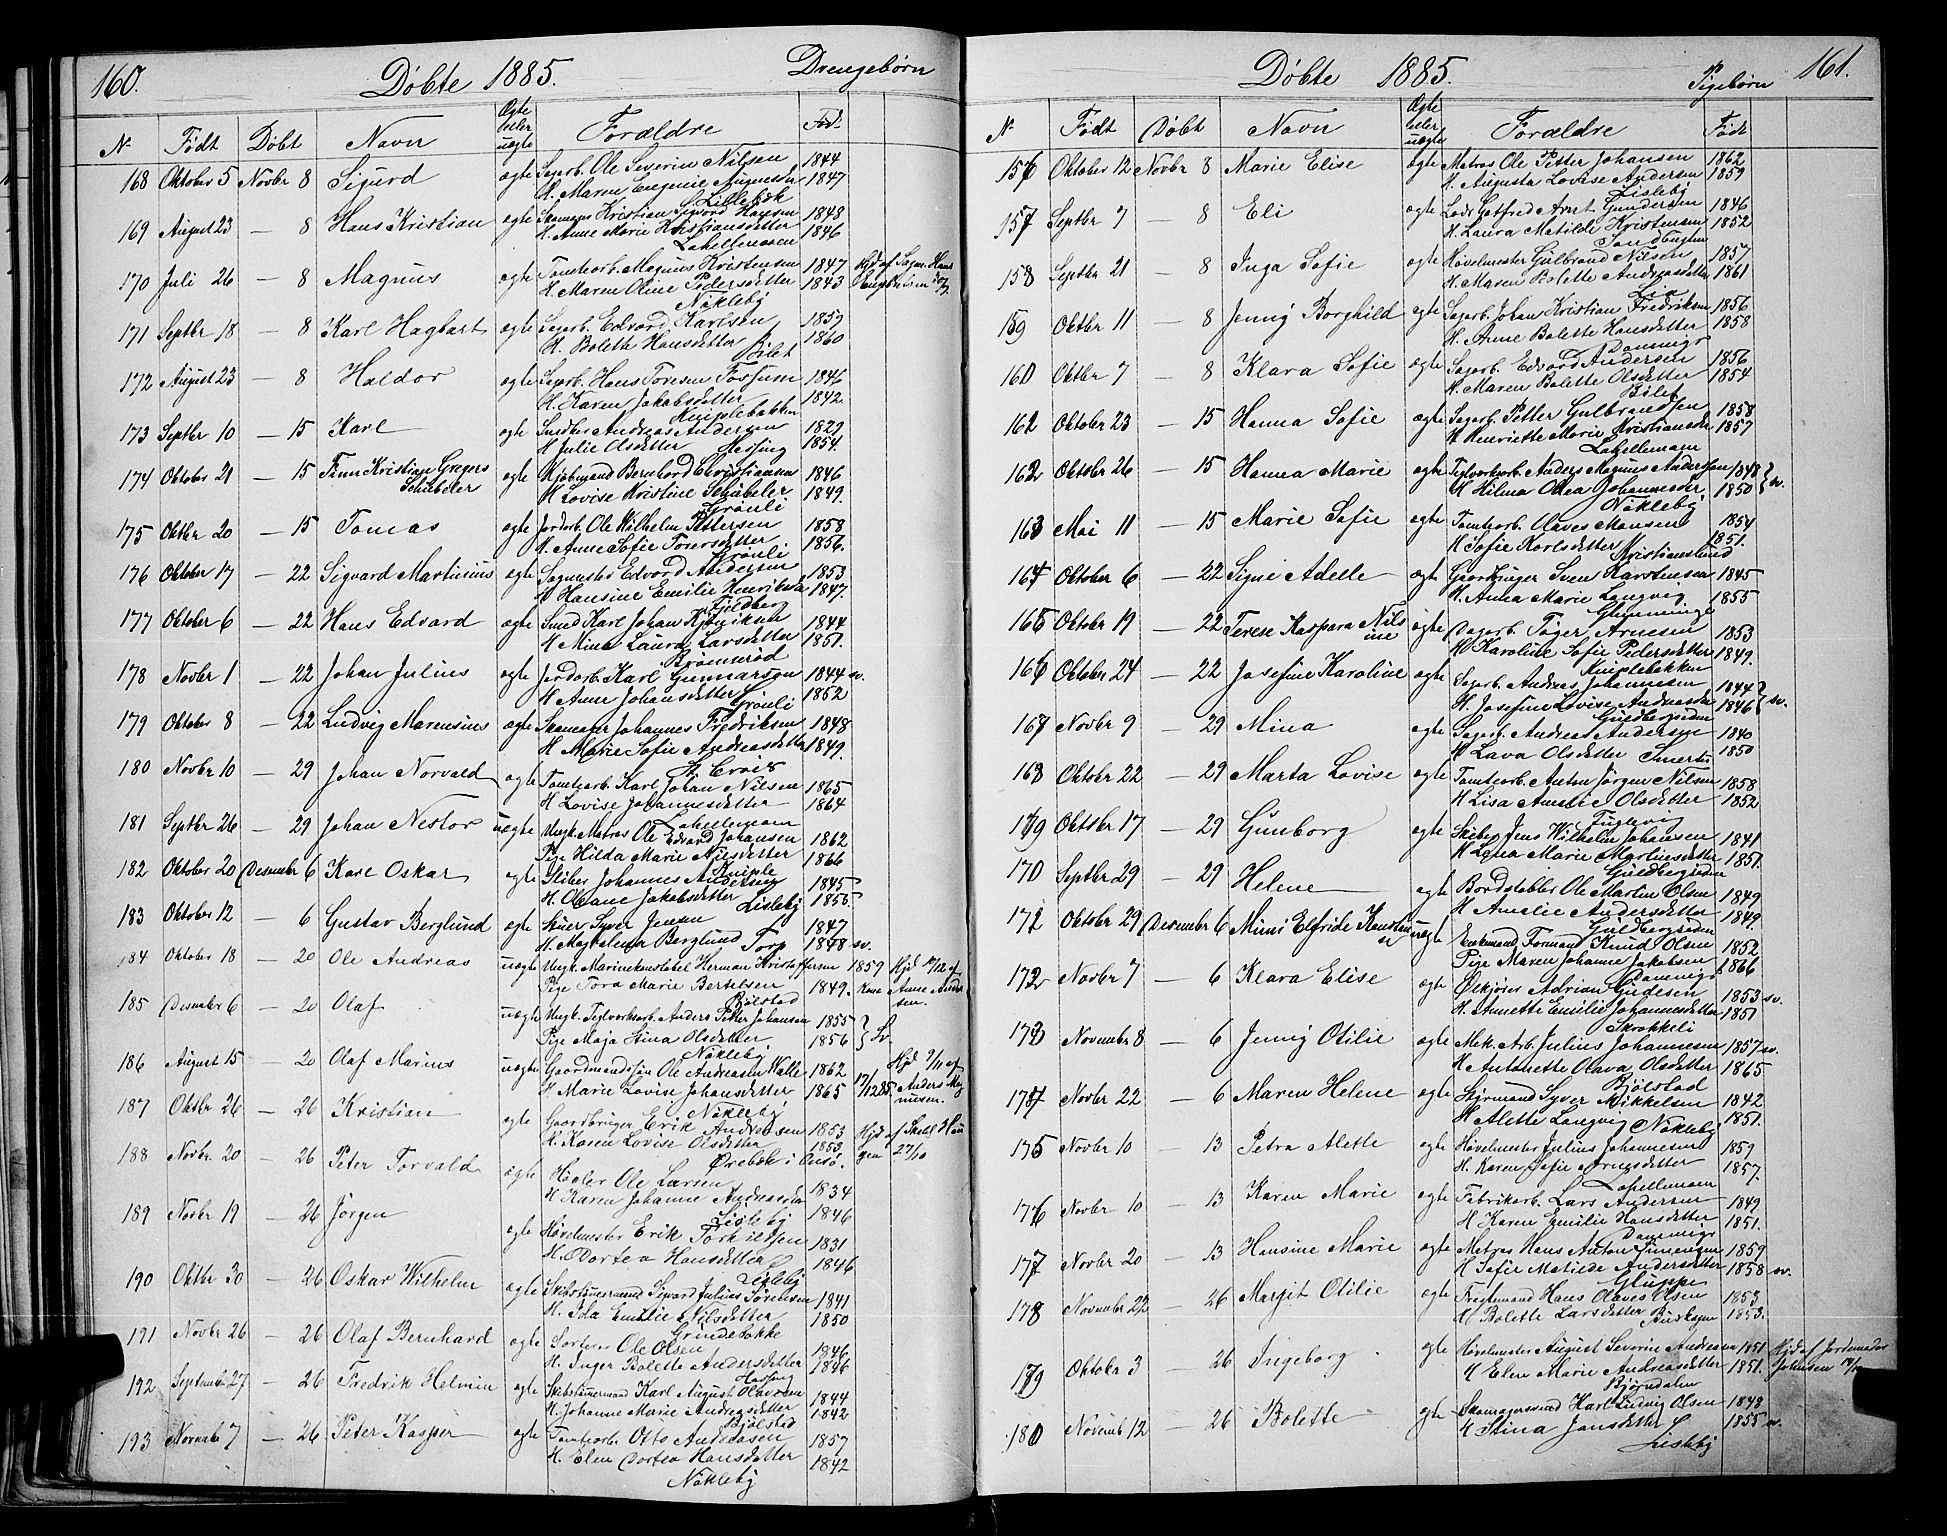 160.
Døbte 1885.
Drengebørn
N. Født Døbt Navn Ægte eller uægte Forældre Fød.
168 Oktober 5 Novbr 8 Sigurd ægte Sagarb. Ole Severin Nilsen 1844
H. Maren Eugenie Augustdtr 1847
169 August 23 — 8 Hans Kristian ægte Skomager Kristian Sigvord Hansen 1848
H. Anne Marie Kristiansdetter 1846
Labellemoen
170 Juli 26 — 8 Magnus ægte Tomtearb. Magnus Kristensen 1847 Hjd af Sagm. Hans
H. Maren Oline Pedersdetter 1843
Nøkleby
171 Septbr 18 — 8 Karl Hagbart ægte Sagarb. Edvard Karlsen 1859
H. Bolette Hansdetter 1860
Bilet
172 August 23 — 8 Haldor ægte Sagarb. Hans Toresen Fossum 1846
H. Karen Jakobsdetter 1842.
Kniplebakken
173 Septbr 10 — 15 Karl ægte Andreas Andersen 1829
H Julie Olsdetter 1854.
174 Oktober 21 — 15 Finn Kristian Gregers Schübeler ægte Kjøbmand Bernhard Christiansen 1846
H Lovise Kristine Schübeler 1849.
Grønli
175 Oktbr 20 — 15 Tomas ægte Jordarb. Ole Wilhelm Pettersen 1858
H. Anne Sofie Toversdetter 1856.
Grønli
176 Oktober 17 — 22 Sigvard Martinius ægte Sagmester Edvard Andersen 1853
H Hansine Emilie Henriksen 1847.
Fjeldberg
177 Oktober 6 — 22 Hans Edvard ægte Smed Karl Johan 1844
H Mina Laura Larsdetter 1851.
178 Novbr 1 — 22 Johan Julius ægte Jordarb. Karl Gunnarson 1844 sv.
H Anne Johansdetter 1852
Grønli
179 Oktober 8 — 22 Ludvig Marensius ægte Skomager Johannes Fredriksen 1848
H Marie Sofie Andreasdetter 1849.
St. Croix
180 Novbr 10 — 29 Johan Norvald ægte Tomtearb. Karl Johan Nilsen 1865
H Lovise Johannesdetter 1864
Labellemoen
181 Septbr 26 — 29 Johan Nestor uægte Ungk. Matros Ole Edvard Johansen 1862
Pige Hilda Marie Nilsdetter 1866
Kniple
182 Oktober 20 Desember 6 Karl Oskar ægte Johannes Andersen 1845
H. Oleane Jakobsdetter 1856.
Lisleby
183 Oktober 12 — 6 Gustav Berglund ægte Stuer Syver Jensen 1847
H. Magdalena Berglund Torp 1848 sv.
184 Oktober 18 — 20 Ole Andreas uægte Ungk. Marinekonstabel Herman Kristoffersen 1859 Hjd 17/12 af
Pige Tora Marie Bertelsen 1849. Kone Anne Andersen.
Bjølstad
185 Desember 6 — 20 Olaf uægte Ungk. Teglverksarb. Anders Petter Johansen 1855
Pige Maja Stina Olsdetter 1856 } Sv.
Nøkleby
186 August 15 — 20 Olaf Marius uægte Gaardmandssøn Ole Andreasen Walle 1862 Hjd 9/11 af
H. Marie Lovise Johansdetter 1865 17/12 85. Anders Magnussen.
Nøkleby
187 Oktbr 26 — 26 Kristian ægte Gaardbruger Erik Andreasen 1853 Hjd af Skoll Haugen 27/10
H. Karen Lovise Olsdetter 1853.
Ørebæk i Onsø.
188 Novbr. 20 — 26 Peter Torvald ægte Høvler Ole Larsen 1834
H Karen Johanne Andreasdtr 1846
Lisleby
189 Novbr 19 — 26 Jørgen ægte Høvelmester Erik Torkildsen 1831
H. Dortea Hansdetter 1846
Lisleby
190 Oktbr 30 — 26 Oskar Wilhelm ægte Skibstømermand Sivard Julius Sørensen 1841
H. Ida Emilie Nilsdetter 1850
Grindeløkke
191 Novbr 26 — 26 Olaf Bernhard ægte Sorterer Ole Olsen 1846
H. Inger Bolette Andersdetter 1846
192 September 27 — 26 Fredrik Helmin ægte Skibstømermand Karl August Olavesen 1844
H. Johanne Marie Andreasdetter 1842
Bjølstad
193 Novmbr 7 — 26 Peter Kasper ægte Tomtearb. Otto Andreasen 1857
H. Elen Dortea Hansdetter 1842
Nøkleby
161.
Døbte 1885.
Pigebørn
N. Født Døbt Navn Ægte eller uægte Forældre Født
156 Oktober 12 Novbr 8 Marie Elise ægte Matros Ole Petter Johansen 1862
H. Augusta Lovise Andersen 1859
Lisleby
157 Septbr 7 — 8 Eli ægte Lods Gotfred Arnt Gundersen 1846
H. Laura Matilde Kristensen 1852
158 Septbr 21 — 8 Inga Sofie ægte Høvelmester Gulbrand Nilsen 1857
H. Maren Bolette Andreasdetter 1861
Lia
159 Oktbr 11 — 8 Jenny Borghild ægte Sagarb. Johan Kristian Fredriksen 1856
H. Anne Bolette Hansdetter 1858
Dammyr
160 Oktbr 7 — 8 Klara Sofie ægte Sagarb. Edvard Andersen 1856
H. Maren Bolette Olsdetter 1854
Bilet
162 Oktober 23 — 15 Hanna Sofie ægte Sagarb. Petter Gulbrandsen 1858
H Henriette Marie Kristiansdtr 1857
Labellemoen
162 Oktober 26 — 15 Hanna Marie ægte Teglverksarb. Anders Magnus Andersson 1848
H Hilma Olea Johannesdtr. 1850 } sv.
Nøkleby
163 Mai 11 — 15 Marie Sofie ægte Tomtearb. Olaves Monsen 1854
H Sofie Karlsdetter 1851.
Kristianslund
164 Oktober 6 — 22 Signe Adelle ægte Gaardbruger Sven Karstensen 1845
H. Anna Marie Langvig 1855
Glemminge
165 Oktober 19 — 22 Terese Kaspara Nilsine ægte Dagarb. Tøger Arnesen 1853
H Karoline Sofie Pedersdetter 1849.
Kniplebakken
166 Oktober 24 — 22 Josefine Karoline ægte Sagarb. Andreas Johannesen 1844
H. Josefine Lovise Andreasdtr 1846 } sv.
Guldbergsiden
167 Novbr 9 — 29 Mina ægte Sagarb. Andreas Andersen 1840
H Lava Olsdetter Smertu 1850
168 Oktober 22 — 29 Marta Lovise ægte Tomtearb. Anton Jørgen Nilsen 1858
H Lisa Amalie Olsdetter 1852
Fuglevig
179 Oktober 17 — 29 Gunborg ægte Skibsf. Jens Wilhelm Johansen 1841
H Lena Marie Martinsdetter 1851.
Guldbergsiden
170 Septbr 29 — 29 Helene ægte Bordstabler Ole Martin Olsen 1849
H Amalie Andersdetter 1849.
Guldbergsiden
172 Oktober 29 Desember 6 Mimi Elfride uægte Enkemand Formand Knud Olsen 1852
Pige Maren Johanne Jakobsen 1866
Dammyr
172 Novbr 7 — 6 Klara Elise ægte Ølkjører Adrian Gudesen 1853 sv.
H. Annette Emilie Johannesdetter 1851
Skrokkeli
173 November 8 — 6 Jenny Otilie ægte Mek. Arb. Julius Johannesen 1857 sv.
H Antonette Olava Olsdetter 1865
Bjølstad
174 Novbr 22 — 6 Maren Helene ægte Styrmand Syver Mikkelsen 1842
H Alette Langvig Nøkleby 1851.
175 Novbr 10 — 13 Petra Alette ægte Høvelmester Julius Johannesen 1859
H. Karen Sofie Arnesdetter 1857.
Labellemoen
176 Novbr 10 — 13 Karen Marie ægte Fabrikarb. Lars Andersen 1849
H Karen Emilie Hansdetter 1851.
Dammyr
177 Novbr 20 — 13 Hansine Marie ægte Matros Hans Anton Simensen 1859
H Sofie Matilde Andersdetter 1858 sv.
Gluppe
178 November 22 — 26 Margit Otilie ægte Fragtemand Hans Olaves Olsen 1853
H Bolette Larsdetter 1853.
Buskogen
179 Oktober 3 — 26 Ingeborg ægte Høvelmester August Severin Andreasen 1851 Hjd af Jordemoder
H Elen Marie Andreasdetter 1851. Johnsen
Bjørndalen
180 Novemb 12 — 26 Bolette ægte Skomagersvend Karl Ludvig Olsen 1848
H Stina Jonsdetter 1855 sv.
Lisleby